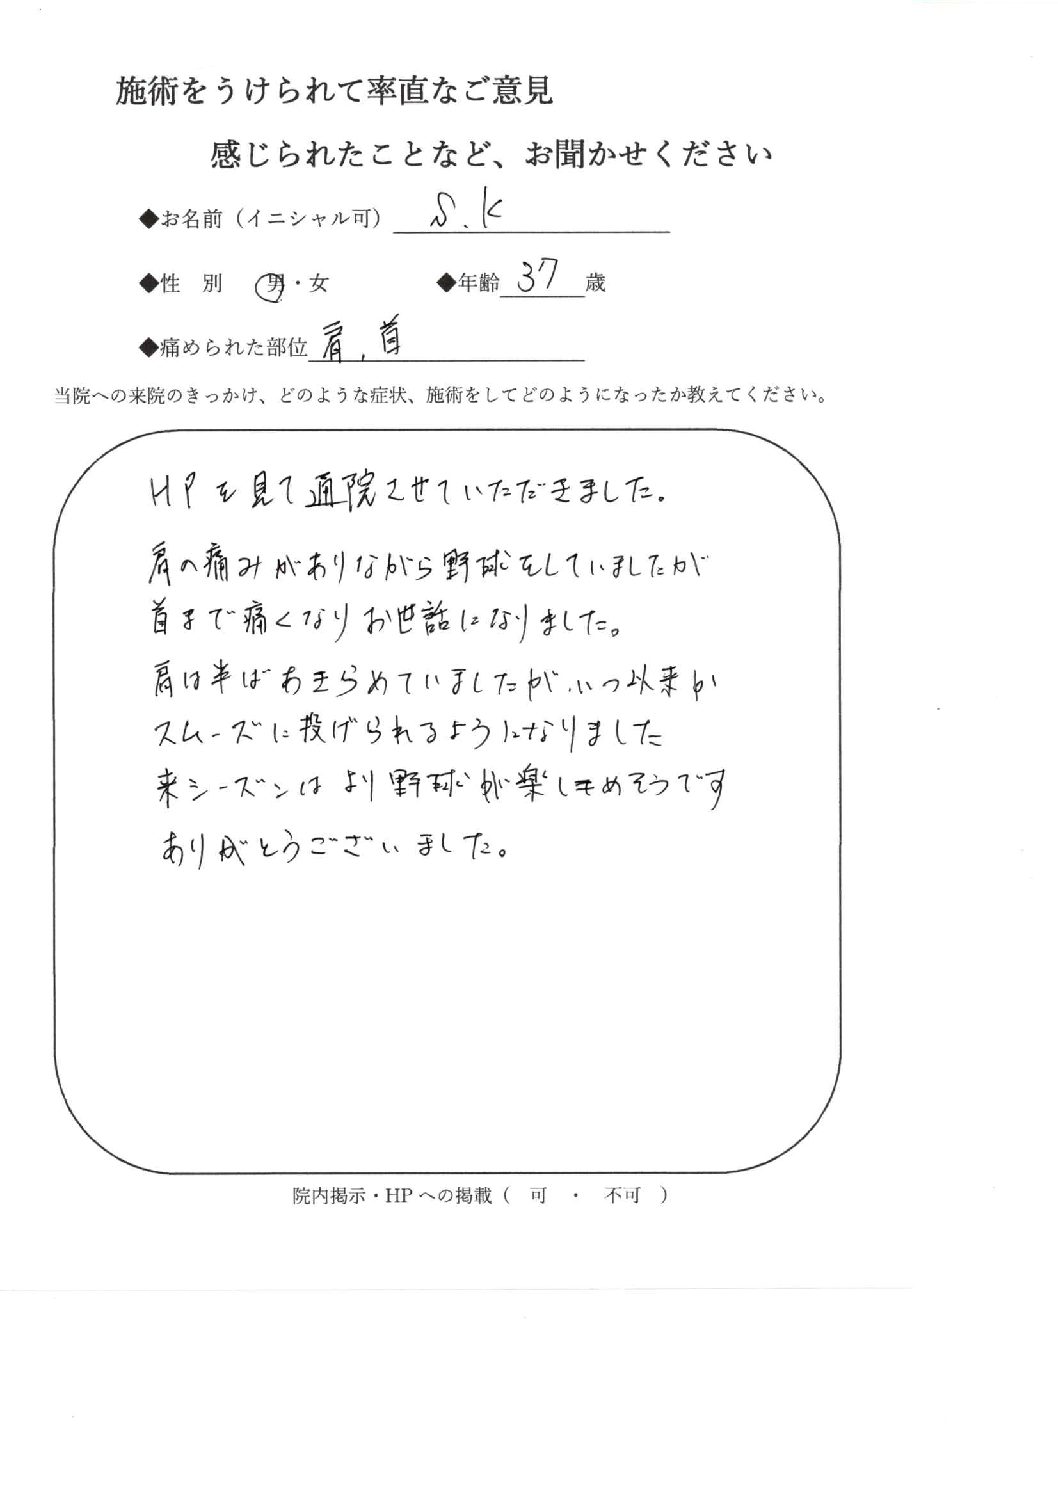 施術をうけられて率直なご意見
感じられたことなど、お聞かせください
◆お名前（イニシャル可） S.K
◆性 別 男・女 ◆年齢 37 歳
◆痛められた部位 肩,首
当院への来院のきっかけ、どのような症状、施術をしてどのようになったか教えてください。
HPを見て通院させていただきました。
肩の痛みがありながら野球をしていましたが
首まで痛くなりお世話になりました。
肩は半ばあきらめていましたが、いつ以来か
スムーズに投げられるようになりました
来シーズンはより野球が楽しめそうです
ありがとうございました。
院内掲示・HPへの掲載（ 可 ・ 不可 ）